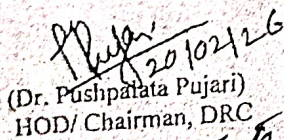 Pujari
20/02/26
(Dr. Pushpalata Pujari)
HOD/ Chairman, DRC